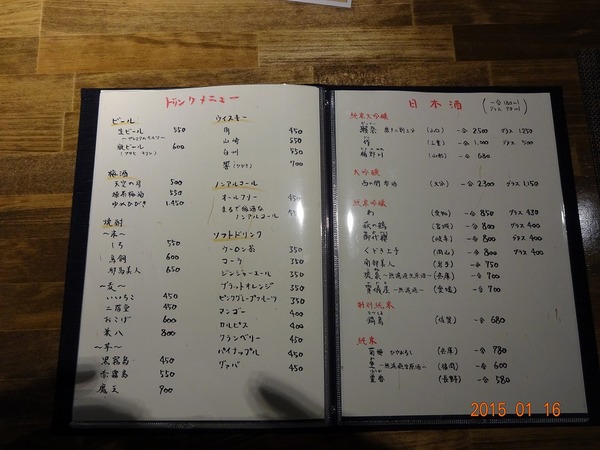 ドリンクメニュー
ビール
生ビール 550
瓶ビール 600
梅酒
天空の月 500
550
ゆめひびき 1,450
焼酎
〜米〜
しろ 550
鳥飼 600
球磨美人 650
〜麦〜
いいちこ 450
二階堂 450
おこげ 600
兼八 800
〜芋〜
黒霧島 450
赤霧島 550
魔王 700
ウイスキー
角 450
山崎 550
白州 550
響 (ひびき) 700
ノンアルコール
オールフリー 450
まるで梅酒な
ノンアルコール
ソフトドリンク
ウーロン茶 350
コーラ 350
ジンジャーエール 350
ブラッドオレンジ 350
ピンクグレープフルーツ 350
マンゴー 400
カルピス 400
クランベリー 450
パイナップル 450
グァバ 450
日本酒 (一合 180ml
グラス
純米大吟醸
獺祭 (山口) 一合 2500 グラス 1250
作 (三重) 一合 1,000 グラス 500
一合 680
大吟醸
西の関 (大分) 一合 2300 グラス 1,150
純米吟醸
(愛知) 一合 850 グラス 430
萩の鶴 (宮城) 一合 800 グラス 400
(岐阜) 一合 800 グラス 400
くどき上手 一合 800 グラス 400
南部美人 (岩手) 一合 750
(兵庫) 一合 700
(愛媛) 一合 700
特別純米
鍋島 (佐賀) 一合 680
純米
菊姫 (兵庫) 一合 780
(福岡) 一合 600
(長野) 一合 580
2015 01 16